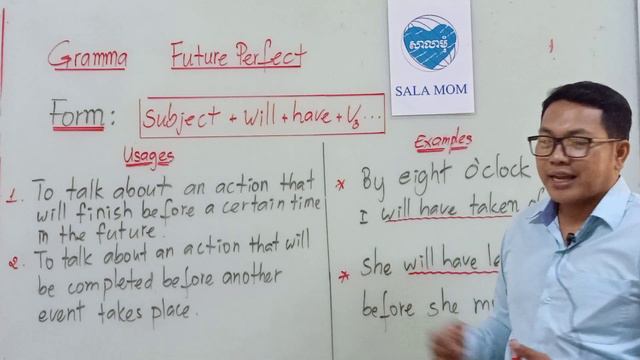 Gramma Future Perfect
សាលាមុំ
SALA MOM
Form: Subject + will + have + V3 ...
Usages
1. To talk about an action that
will finish before a certain time
in the future.
2. To talk about an action that will
be completed before another
event takes place.
Examples
* By eight o'clock
I will have taken
* She will have
before she